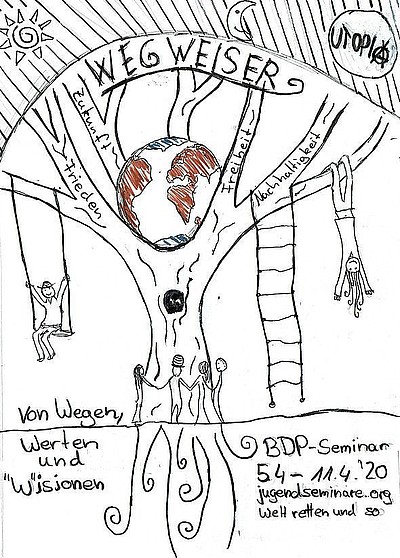 UTOPIA
WEGWEISER
Zukunft
Frieden
Freiheit
Nachhaltigkeit
von Wegen,
Werten
und
"W"isionen
BDP-Seminar
5.4 - 11.4.'20
jugendseminare.org
Welt retten und so